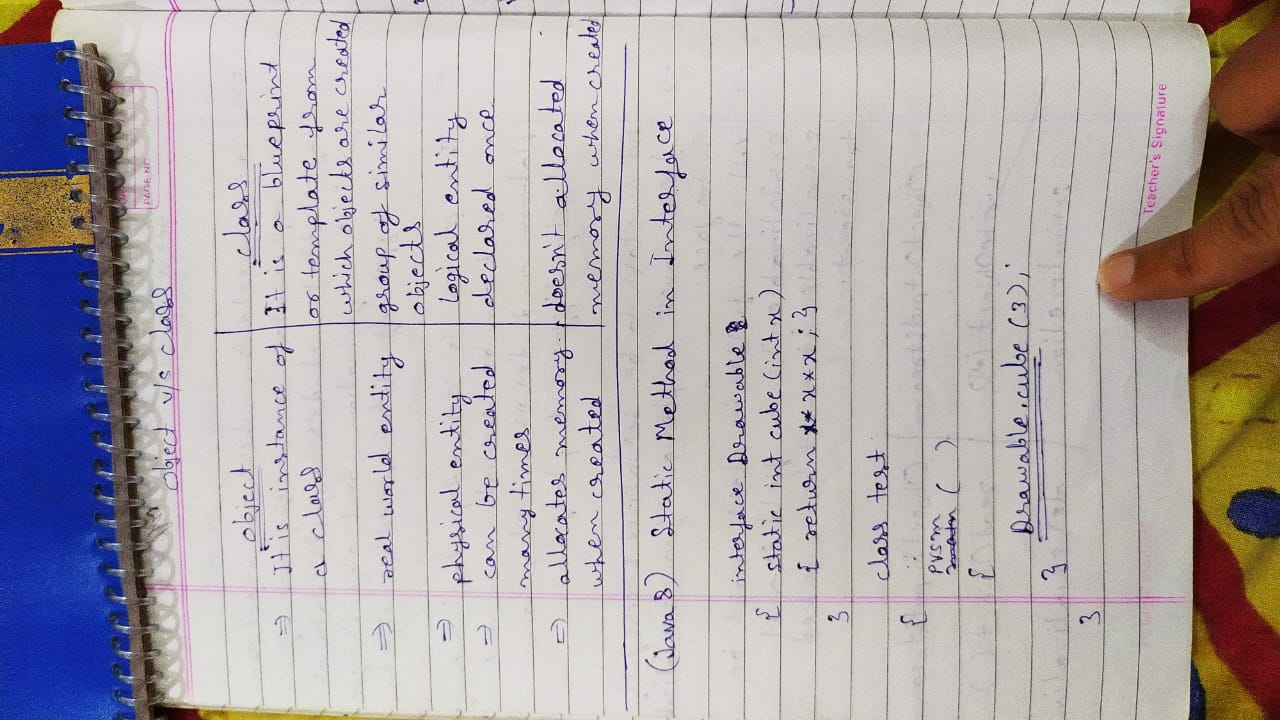 PAGE NO
Object v/s class
object
class
⇒ It is instance of
a class
It is a blueprint
or template from
which objects are created
⇒ real world entity
group of similar
objects
⇒ physical entity
logical entity
⇒ can be created
many times
declared once
⇒ allocates memory
when created
doesn't allocated
memory when created
(Java 8) Static Method in Interface
interface Drawable
{ static int cube (int x)
{ return x*x*x; }
}
class test
{ :
PVSM ( )
{
Drawable.cube (3);
}
}
Teacher's Signature